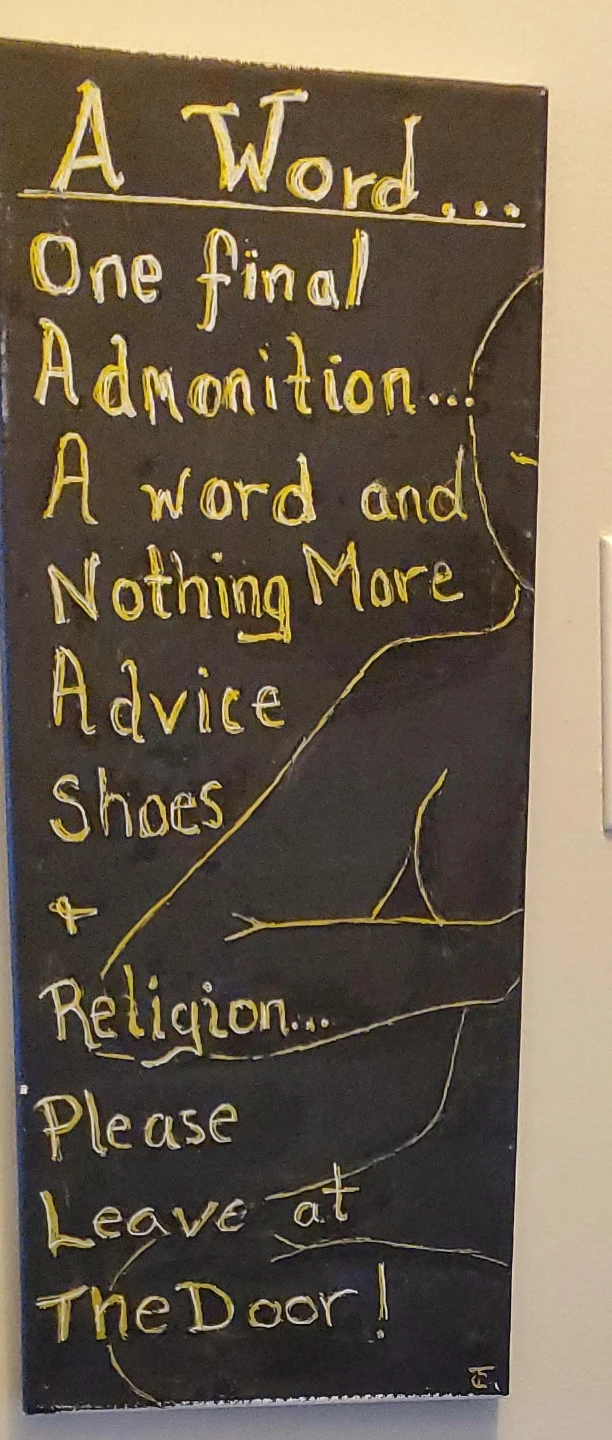 A Word...
One final
Admonition...
A word and
Nothing More
Advice
Shoes
+
Religion...
Please
Leave at
The Door!